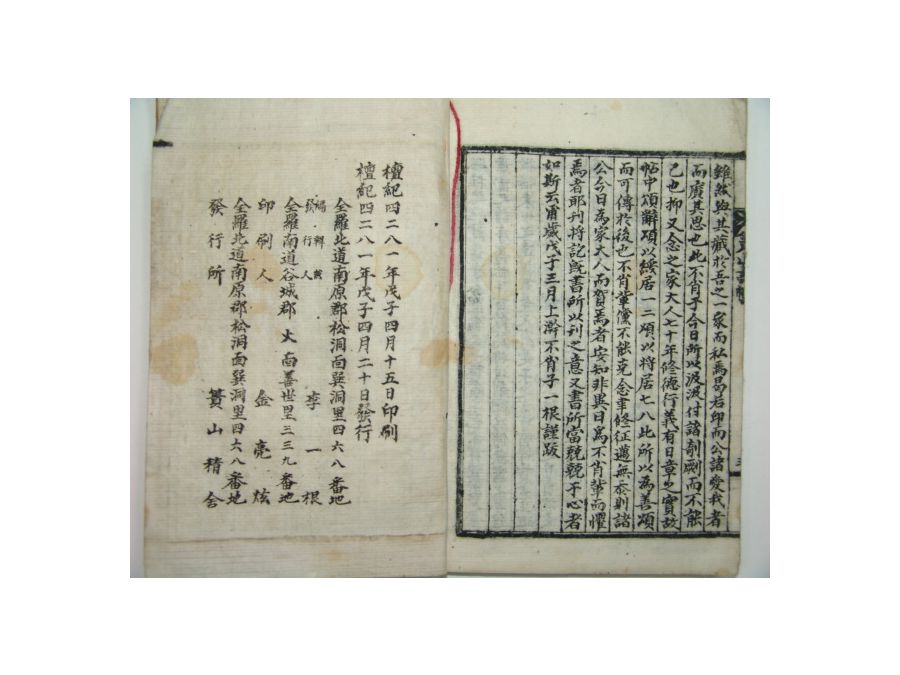 雖然與其藏於吾之一家而私焉曷若印而公諸愛我者
而廣其思也此不肖子今日所以汲汲付諸剞劂而不能
已也抑又念之家大人七十年修德行義有日章之實故
帖中頌辭頌以綏居一二頌以將居七八此所以為善頌
而可傳於後也不肖輩儻不能克念聿修征邁無忝則諸
公今日為家大人而賀焉者安知非異日為不肖輩而懼
焉者耶刊將訖旣書所以刊之意又書所當兢兢于心者
如斯云爾歲戊子三月上澣不肖子一根謹跋
檀紀四二八一年戊子四月十五日印刷
檀紀四二八一年戊子四月二十日發行
全羅北道南原郡松洞面巽洞里四六八番地
編輯兼發行人 李一根
全羅南道谷城郡火面善世里三三九番地
印刷人 金亮炫
全羅北道南原郡松洞面巽洞里四六八番地
發行所 蕢山精舍